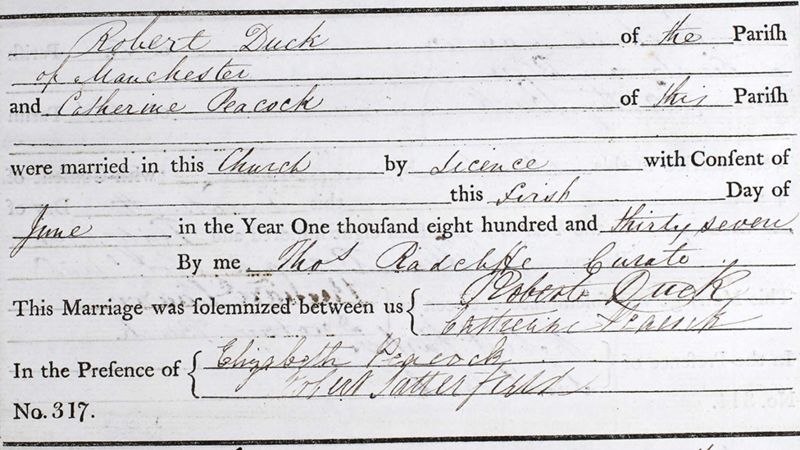 Robert Duck of the Pariſh
of Manchester
and Catherine Peacock of this Pariſh
were married in this Church by Licence with Conſent of
this First Day of
June in the Year One thouſand eight hundred and thirty seven
By me Thos Radcliffe Curate
This Marriage was ſolemnized between us { Robert Duck
Catherine Peacock
In the Preſence of { Elizabeth Peacock
Robert Satterfield
No. 317.